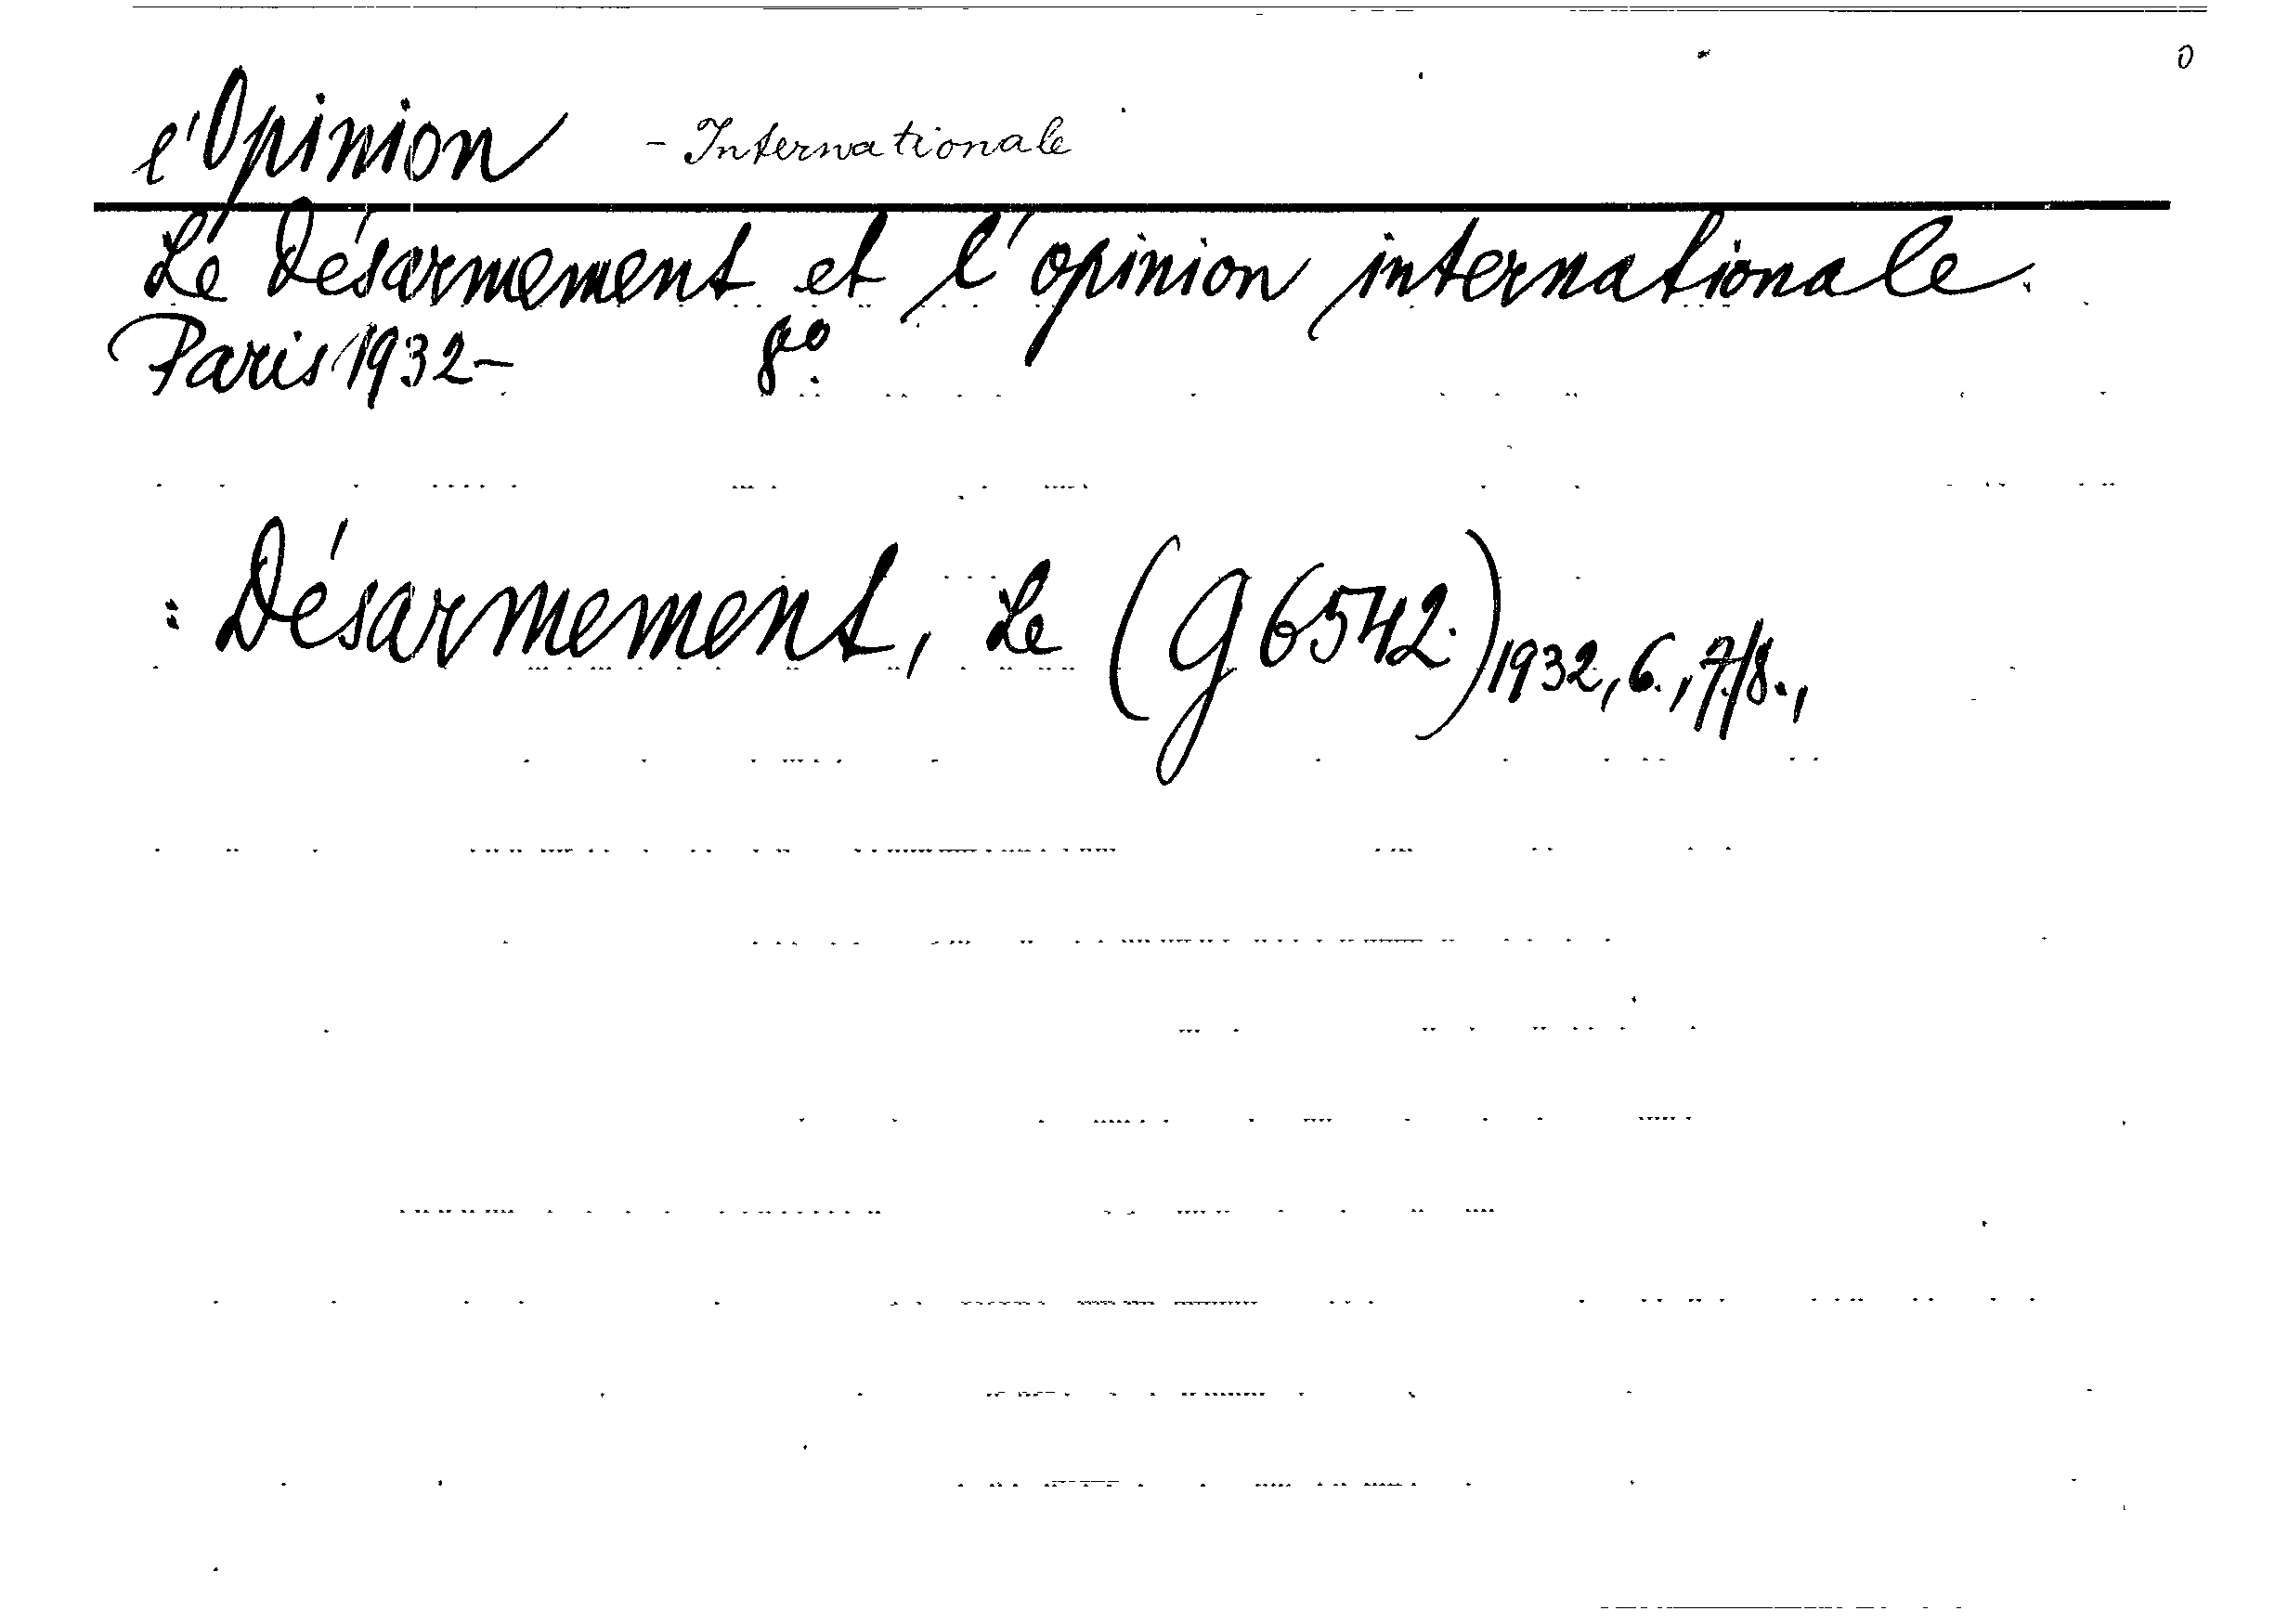 0
l'Opinion - Internationale
Le Désarmement et l'opinion internationale.
Paris 1932- 8º.
: Désarmement, Le (G 6542.) 1932, 6., 7./8.,